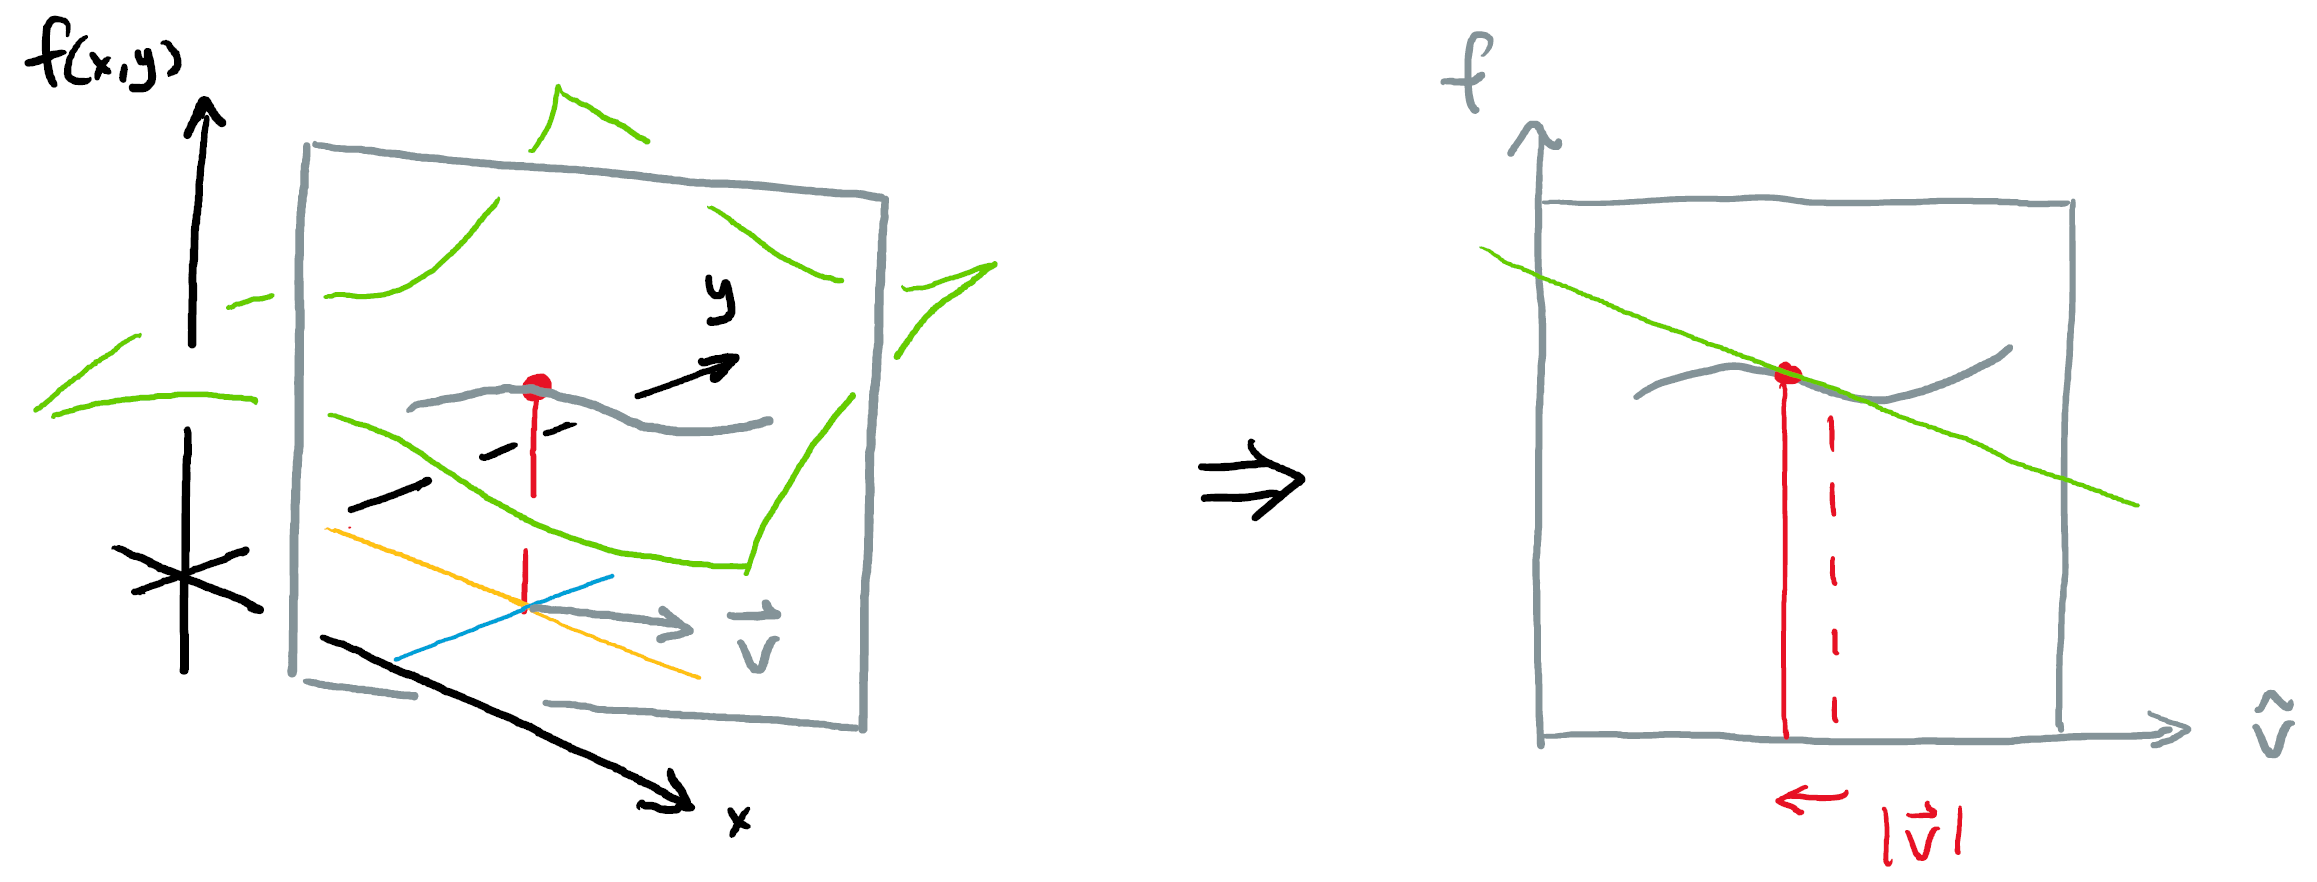 f(x,y)
y
v⃗
x
⇒
f
v̂
|v⃗|